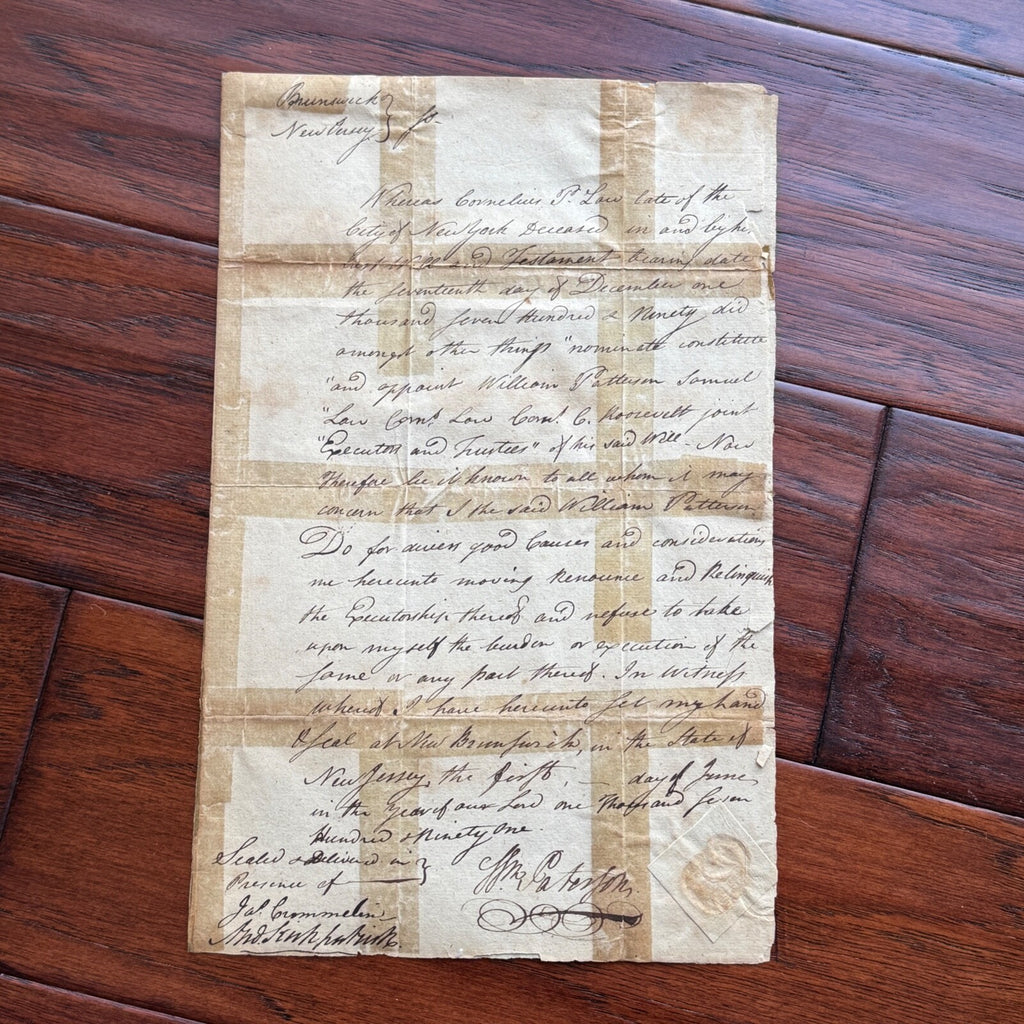 Brunswick }
New Jersey } ss.
Whereas Cornelius P. Low late of the
City of New York Deceased in and by his
last Will and Testament bearing date
the seventeenth day of December one
thousand seven Hundred & Ninety did
amongst other things "nominate constitute
"and appoint William Patterson Samuel
"Low Corns. Low Corns. C. Roosevelt joint
"Executors and Trustees" of his said Will - Now
Therefore be it known to all whom it may
concern that I the said William Patterson
Do for divers good Causes and considerations
me hereunto moving Renounce and Relinquish
the Executorship thereof and refuse to take
upon myself the burden or execution of the
same or any part thereof. In Witness
whereof I have hereunto set my hand
& seal at New Brunswick, in the State of
New Jersey, the first, — day of June
in the Year of our Lord one Thousand Seven
Hundred & Ninety One.
Sealed & Delivered in }
Presence of
Wm. Paterson
Jas. Crommelin
And. Kirkpatrick